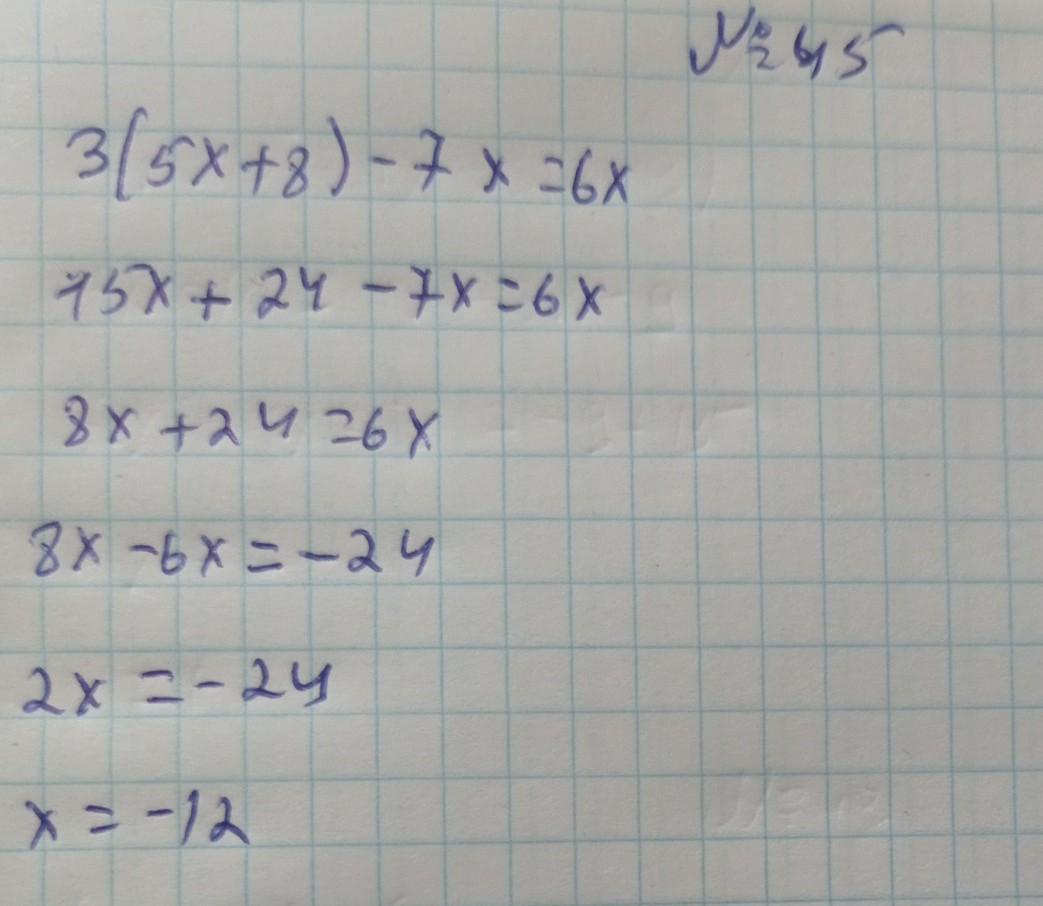 № 645
3(5x+8)-7x=6x
15x+24-7x=6x
8x+24=6x
8x-6x=-24
2x=-24
x=-12